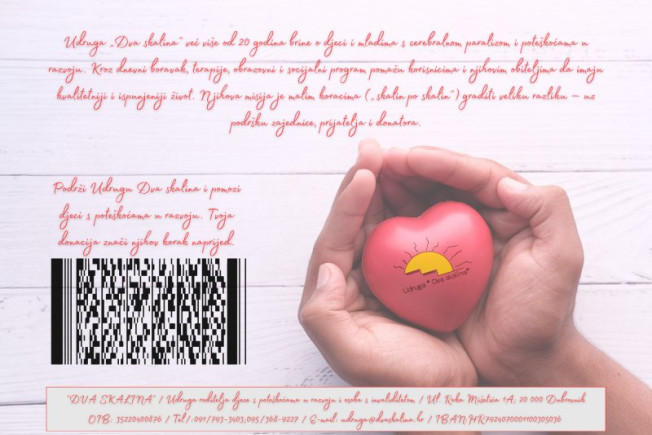 Udruga „Dva skalina” već više od 20 godina brine o djeci i mladima s cerebralnom paralizom i poteškoćama u
razvoju. Kroz dnevni boravak, terapije, obrazovni i socijalni program pomažu korisnicima i njihovim obiteljima da imaju
kvalitetniji i ispunjeniji život. Njihova misija je malim koracima („skalin po skalin”) graditi veliku razliku – uz
podršku zajednice, prijatelja i donatora.
Podrži Udrugu Dva skalina i pomozi
djeci s poteškoćama u razvoju. Tvoja
donacija znači njihov korak naprijed.
Udruga "Dva skalina"
"DVA SKALINA" / Udruga roditelja djece s poteškoćama u razvoju i osoba s invaliditetom / Ul. Ruba Mišetića 1A; 20 000 Dubrovnik
OIB: 35220400876 / Tel/:091/793-3403,095/368-9227 / E-mail: udruga@dvaskalina.hr / IBAN HR7924070001100305036